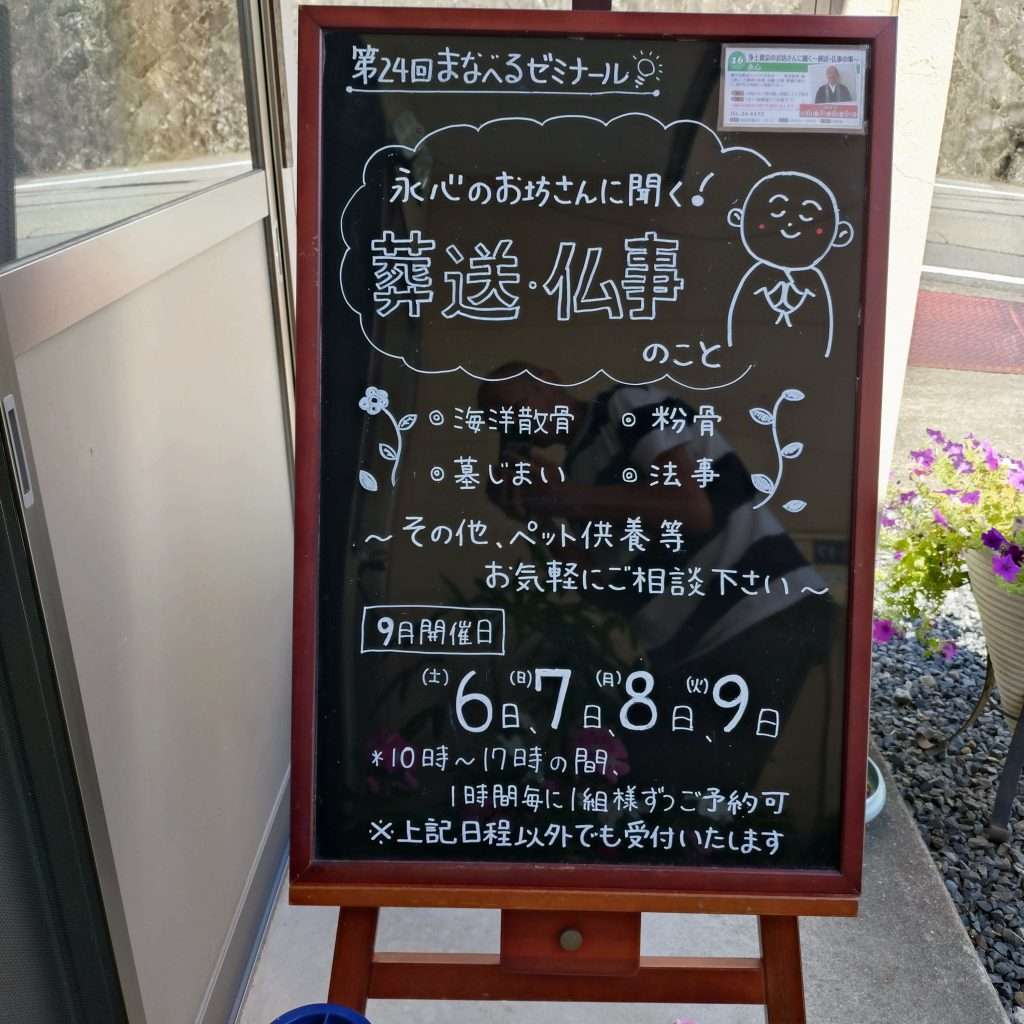 第24回まなべるゼミナール
永心のお坊さんに聞く!
葬送・仏事
のこと
◎海洋散骨 ◎粉骨
◎墓じまい ◎法事
～その他、ペット供養等
お気軽にご相談下さい～
9月開催日
(土)6日、(日)7日、(月)8日、(火)9日
*10時～17時の間、
1時間毎に1組様ずつご予約可
※上記日程以外でも受付いたします